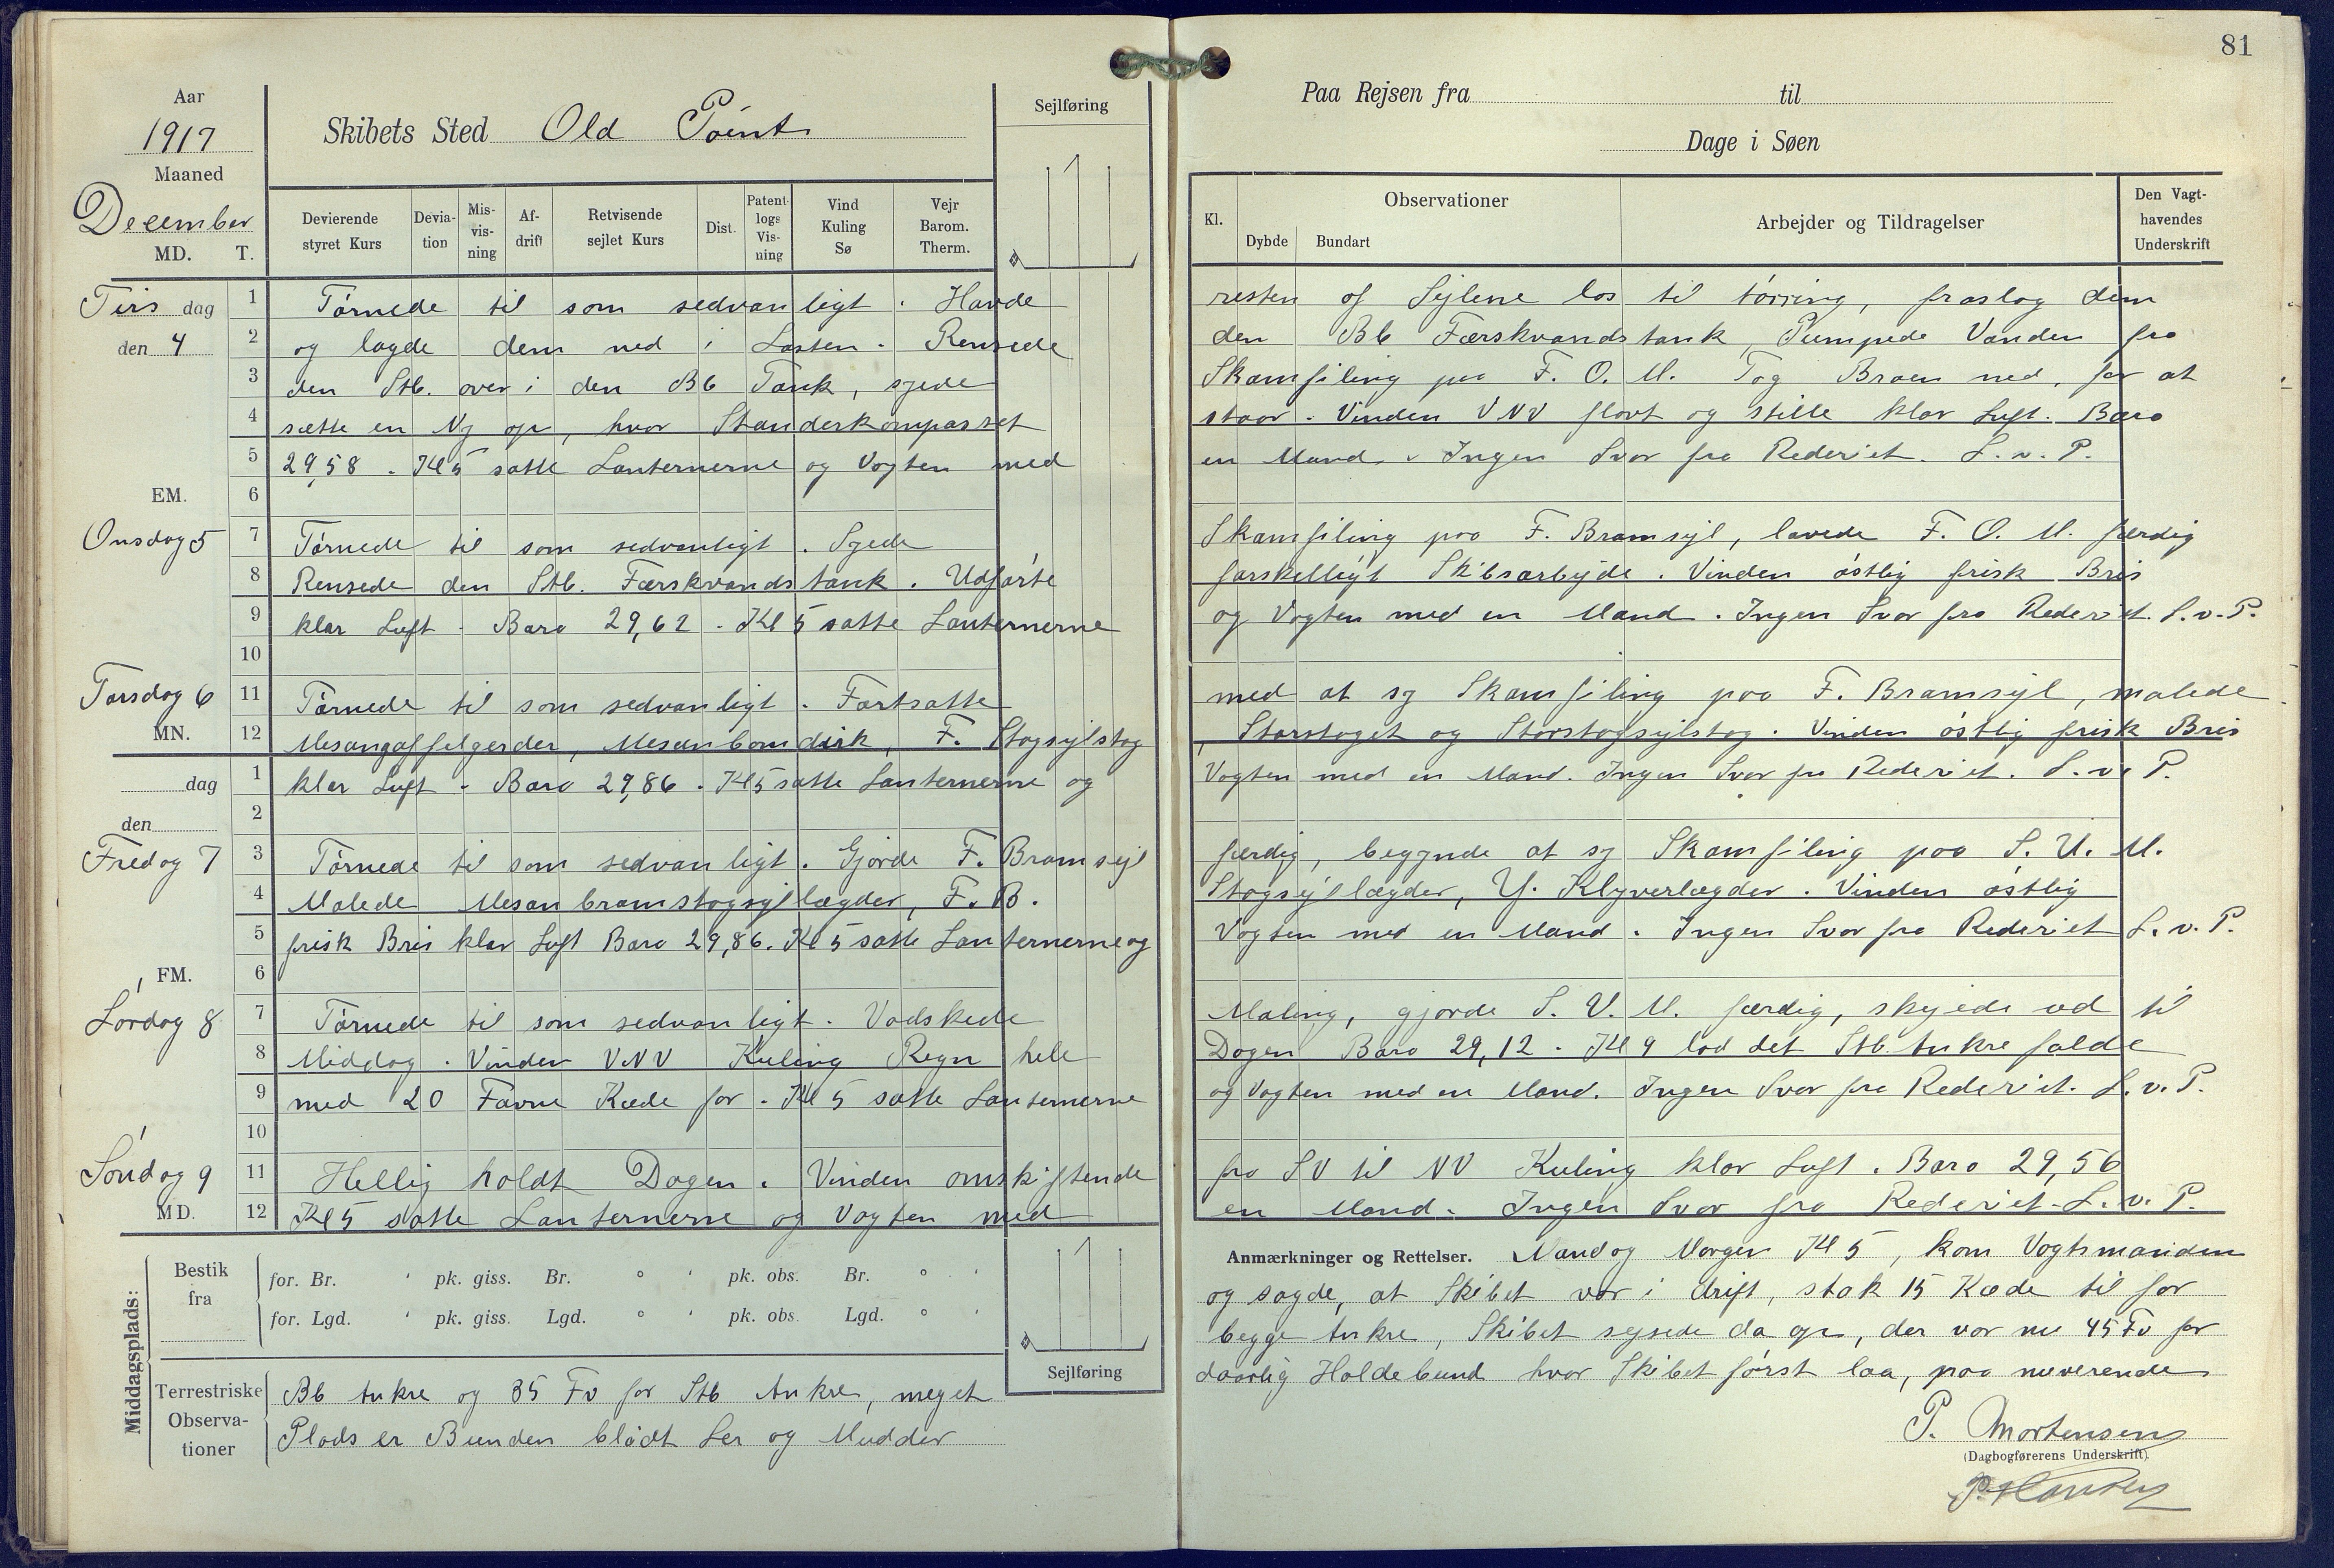 81
Aar
1917
Maaned
December
MD. T.
Skibets Sted Old Point
Sejlføring
Paa Rejsen fra til
Dage i Søen
Devierende styret Kurs
Devia-tion
Mis-vis-ning
Af-drift
Retvisende sejlet Kurs
Dist.
Patent-logs Vis-ning
Vind Kuling Sø
Vejr Barom. Therm.
Kl.
Observationer
Dybde
Bundart
Arbejder og Tildragelser
Den Vagt-havendes Underskrift
Tirs dag 1 Tørnede til som sedvanligt. Havde resten af Sejlene los til tørring, fraslog dem
den 4 2 og lagde dem ned i Lasten. Rensede den Bb Færskvandstank, Pumpede Vanden fra
3 den Stb. over i den Bb Tank, syede Skamfiling paa F. O. M. Tog Broen ned, for at
4 sætte en Ny op, hvor Standerkompasset staar. Vinden VNV flovt og stille klar Luft. Baro
5 29,58. Kl 5 satte Lanternerne og Vagten med en Mand. Ingen Svar fra Rederiet. L. v. P.
EM. 6
Onsdag 5 7 Tørnede til som sedvanligt. Syede Skamfiling paa F. Bramsejl, lavede F. O. M. færdig
8 Rensede den Stb. Færskvandstank. Udførte forskelligt Skibsarbejde. Vinden østlig frisk Bris
9 klar Luft. Baro 29,62. Kl 5 satte Lanternerne og Vagten med en Mand. Ingen Svar fra Rederiet. L. v. P.
10
Torsdag 6 11 Tørnede til som sedvanligt. Fortsatte med at sy Skamfiling paa F. Bramsejl, malede
MN. 12 Mesangaffelgerder, Mesanbomdirk, F. Stagsejlstag, Storstaget og Storstagsejlstag. Vinden østlig frisk Bris
dag 1 klar Luft. Baro 29,86. Kl 5 satte Lanternerne og Vagten med en Mand. Ingen Svar fra Rederiet. L. v. P.
den 2
Fredag 7 3 Tørnede til som sedvanligt. Gjorde F. Bramsejl færdig, begynde at sy Skamfiling paa S. U. M.
4 Malede Mesanbramstagsejllægder, F. B. Stagsejllægder, Y. Klyverlægder. Vinden østlig
5 frisk Bris klar Luft Baro 29,86. Kl 5 satte Lanternerne og Vagten med en Mand. Ingen Svar fra Rederiet L. v. P.
FM. 6
Lørdag 8 7 Tørnede til som sedvanligt. Vadskede Maling, gjorde S. U. M. færdig, skyede ud til
8 Middag. Vinden VNV Kuling Regn hele Dagen Baro 29,12. Kl 9 lod det Stb. Ankre falde
9 med 20 Favne Kæde for. Kl 5 satte Lanternerne og Vagten med en Mand. Ingen Svar fra Rederiet. L. v. P.
10
Søndag 9 11 Hellig holdt Dagen. Vinden omskiftende fra SV til NV Kuling klar Luft. Baro 29,56
MD. 12 Kl 5 satte Lanternerne og Vagten med en Mand. Ingen Svar fra Rederiet. L. v. P.
Middagsplads:
Bestik fra
for. Br. ' pk. giss. Br. ° ' pk. obs. Br. ° '
for. Lgd. ' pk. giss. Lgd. ° ' pk. obs. Lgd. ° '
Sejlføring
Anmærkninger og Rettelser. Mandag Morgen Kl 5, kom Vagtsmanden
og sagde, at Skibet var i drift, stak 15 Kæde til for
begge Ankre, Skibet sejsede da op, der var nu 45 Fv for
Terrestriske Observa-tioner
Bb Ankre og 35 Fv for Stb Ankre, meget daarlig Holdebund hvor Skibet først laa, paa nuverende
Plads er Bunden blødt Ler og Mudder
P. Mortensen
(Dagbogførerens Underskrift).